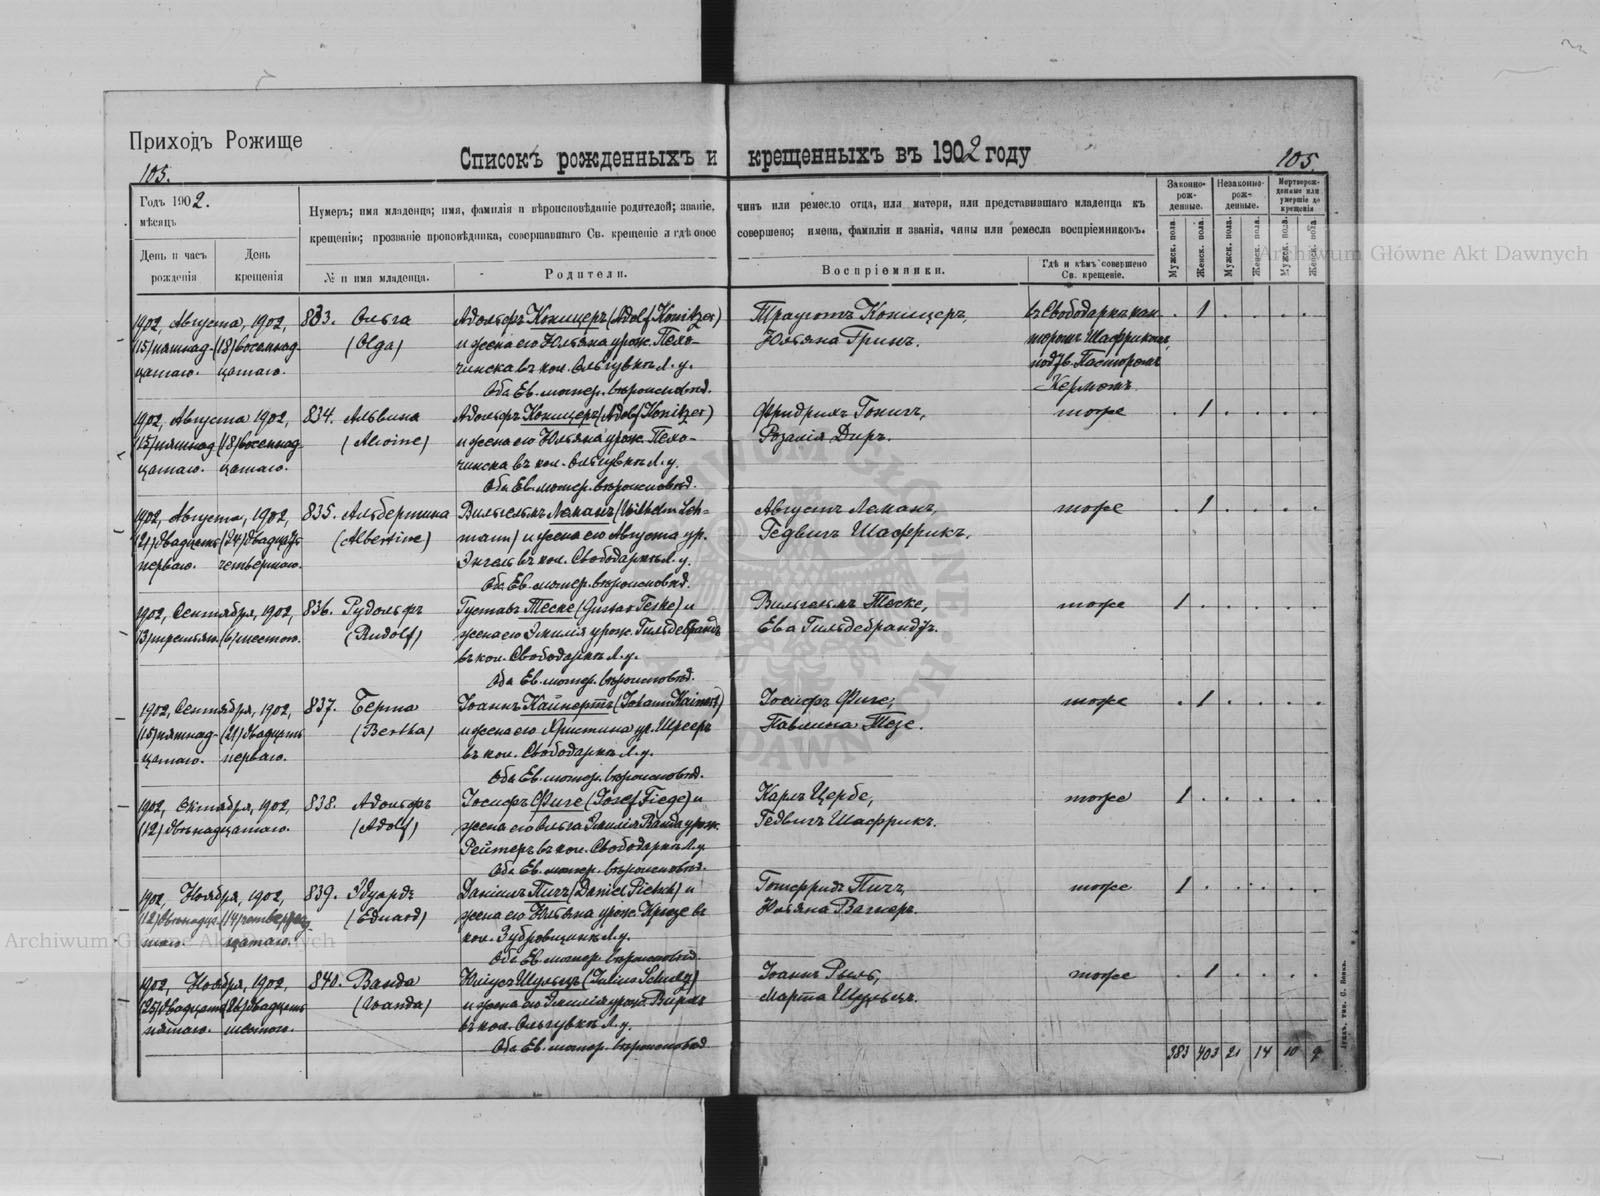 Приходъ Рожище
105.
Списокъ рожденныхъ и крещенныхъ въ 1902 году
105.
Годъ 1902.
мѣсяцъ
День и часъ рожденія
День крещенія
Нумеръ; имя младенца; имя, фамилія и вѣроисповѣданіе родителей; званіе, чинъ или ремесло отца, или матери, или представившаго младенца къ
крещенію; прозваніе проповѣдника, совершавшаго Св. крещеніе и гдѣ оное совершено; имена, фамиліи и званія, чины или ремесла воспріемниковъ.
№ и имя младенца.
Родители.
Воспріемники.
Гдѣ и кѣмъ совершено Св. крещеніе.
Законно-рожденные.
Незаконно-рожденные.
Мертворожденные или умершіе до крещенія
Мужск. пола.
Женск. пола.
Мужск. пола.
Женск. пола.
Мужск. пола.
Женск. пола.
1902, Августа, 1902, 833. Ольга Адольфъ Коницеръ (Adolf Konitzer) Трауготъ Коницеръ, въ Свободаркѣ кан- 1
(15) пятнад- (18) восемнад- (Olga) и жена его Юльяна урож. Пехо- Юльяна Гринъ. торомъ Шафрикомъ,
цатаго. цатаго. чинска въ кол. Ольгувкѣ Л. у. подтв. Пасторомъ
Оба Ев. лютер. вѣроисповѣд. Кермомъ
1902, Августа 1902, 834. Альвина Адольфъ Коницеръ (Adolf Konitzer) Фридрихъ Гоничъ, тоже 1
(15) пятнад- (18) восемнад- (Alwine) и жена его Юльяна урож. Пехо- Розалія Диръ.
цатаго. цатаго. чинска въ кол. Ольгувкѣ Л. у.
Оба Ев. лютер. вѣроисповѣд.
1902, Августа, 1902, 835. Альбертина Вильгельмъ Леманъ (Wilhelm Leh- Августъ Леманъ, тоже 1
(21) двадцать (24) двадцать (Albertine) mann) и жена его Августа ур. Гедвигъ Шафрикъ.
перваго. четвертаго. Энгель въ кол. Свободаркѣ Л. у.
Оба Ев. лютер. вѣроисповѣд.
1902, Сентября, 1902, 836. Рудольфъ Густавъ Теске (Gustav Teske) и Вильгельмъ Теске, тоже 1
(3) третьяго (6) шестого. (Rudolf) жена его Эмилія урож. Гильдебрандъ Ева Гильдебрандтъ.
въ кол. Свободаркѣ Л. у.
Оба Ев. лютер. вѣроисповѣд.
1902, Сентября, 1902, 837. Берта Іоганъ Кайнертъ (Johann Kainert) Іосифъ Фиге, тоже 1
(15) пятнад- (21) двадцать (Bertha) и жена его Христина ур. Шееръ Павлина Тезе.
цатаго. перваго. въ кол. Свободаркѣ Л. у.
Оба Ев. лютер. вѣроисповѣд.
1902, Октября, 1902, 838. Адольфъ Іосифъ Фиге (Josef Fiege) и Карлъ Цербе, тоже 1
(12) двѣнадцатаго. (Adolf) жена его Ольга Эмилія Ванда урож. Гедвигъ Шафрикъ.
Рейтеръ въ кол. Свободаркѣ Л. у.
Оба Ев. лютер. вѣроисповѣд.
1902, Ноября, 1902, 839. Эдуардъ Даніилъ Пичъ (Daniel Pietsch) и Готфридъ Пичъ, тоже 1
(12) двѣнадца- (14) четырнад- (Eduard) жена его Юльяна урож. Крюге въ Юльяна Вагнеръ.
таго. цатаго. кол. Зубровщинѣ Л. у.
Оба Ев. лютер. вѣроисповѣд.
1902, Ноября, 1902, 840. Ванда Юліусъ Шульцъ (Julius Schulz) Іоганъ Рыль, тоже 1
(25) двадцать (26) двадцать (Wanda) и жена его Эмилія урож. Вирхъ Марта Шульцъ.
пятаго. шестого. въ кол. Ольгувкѣ Л. у.
Оба Ев. лютер. вѣроисповѣд
383 403 21 14 10 9
Archiwum Główne Akt Dawnych
Archiwum Główne Akt Dawnych
ARCHIWUM GŁÓWNE AKT DAWNYCH